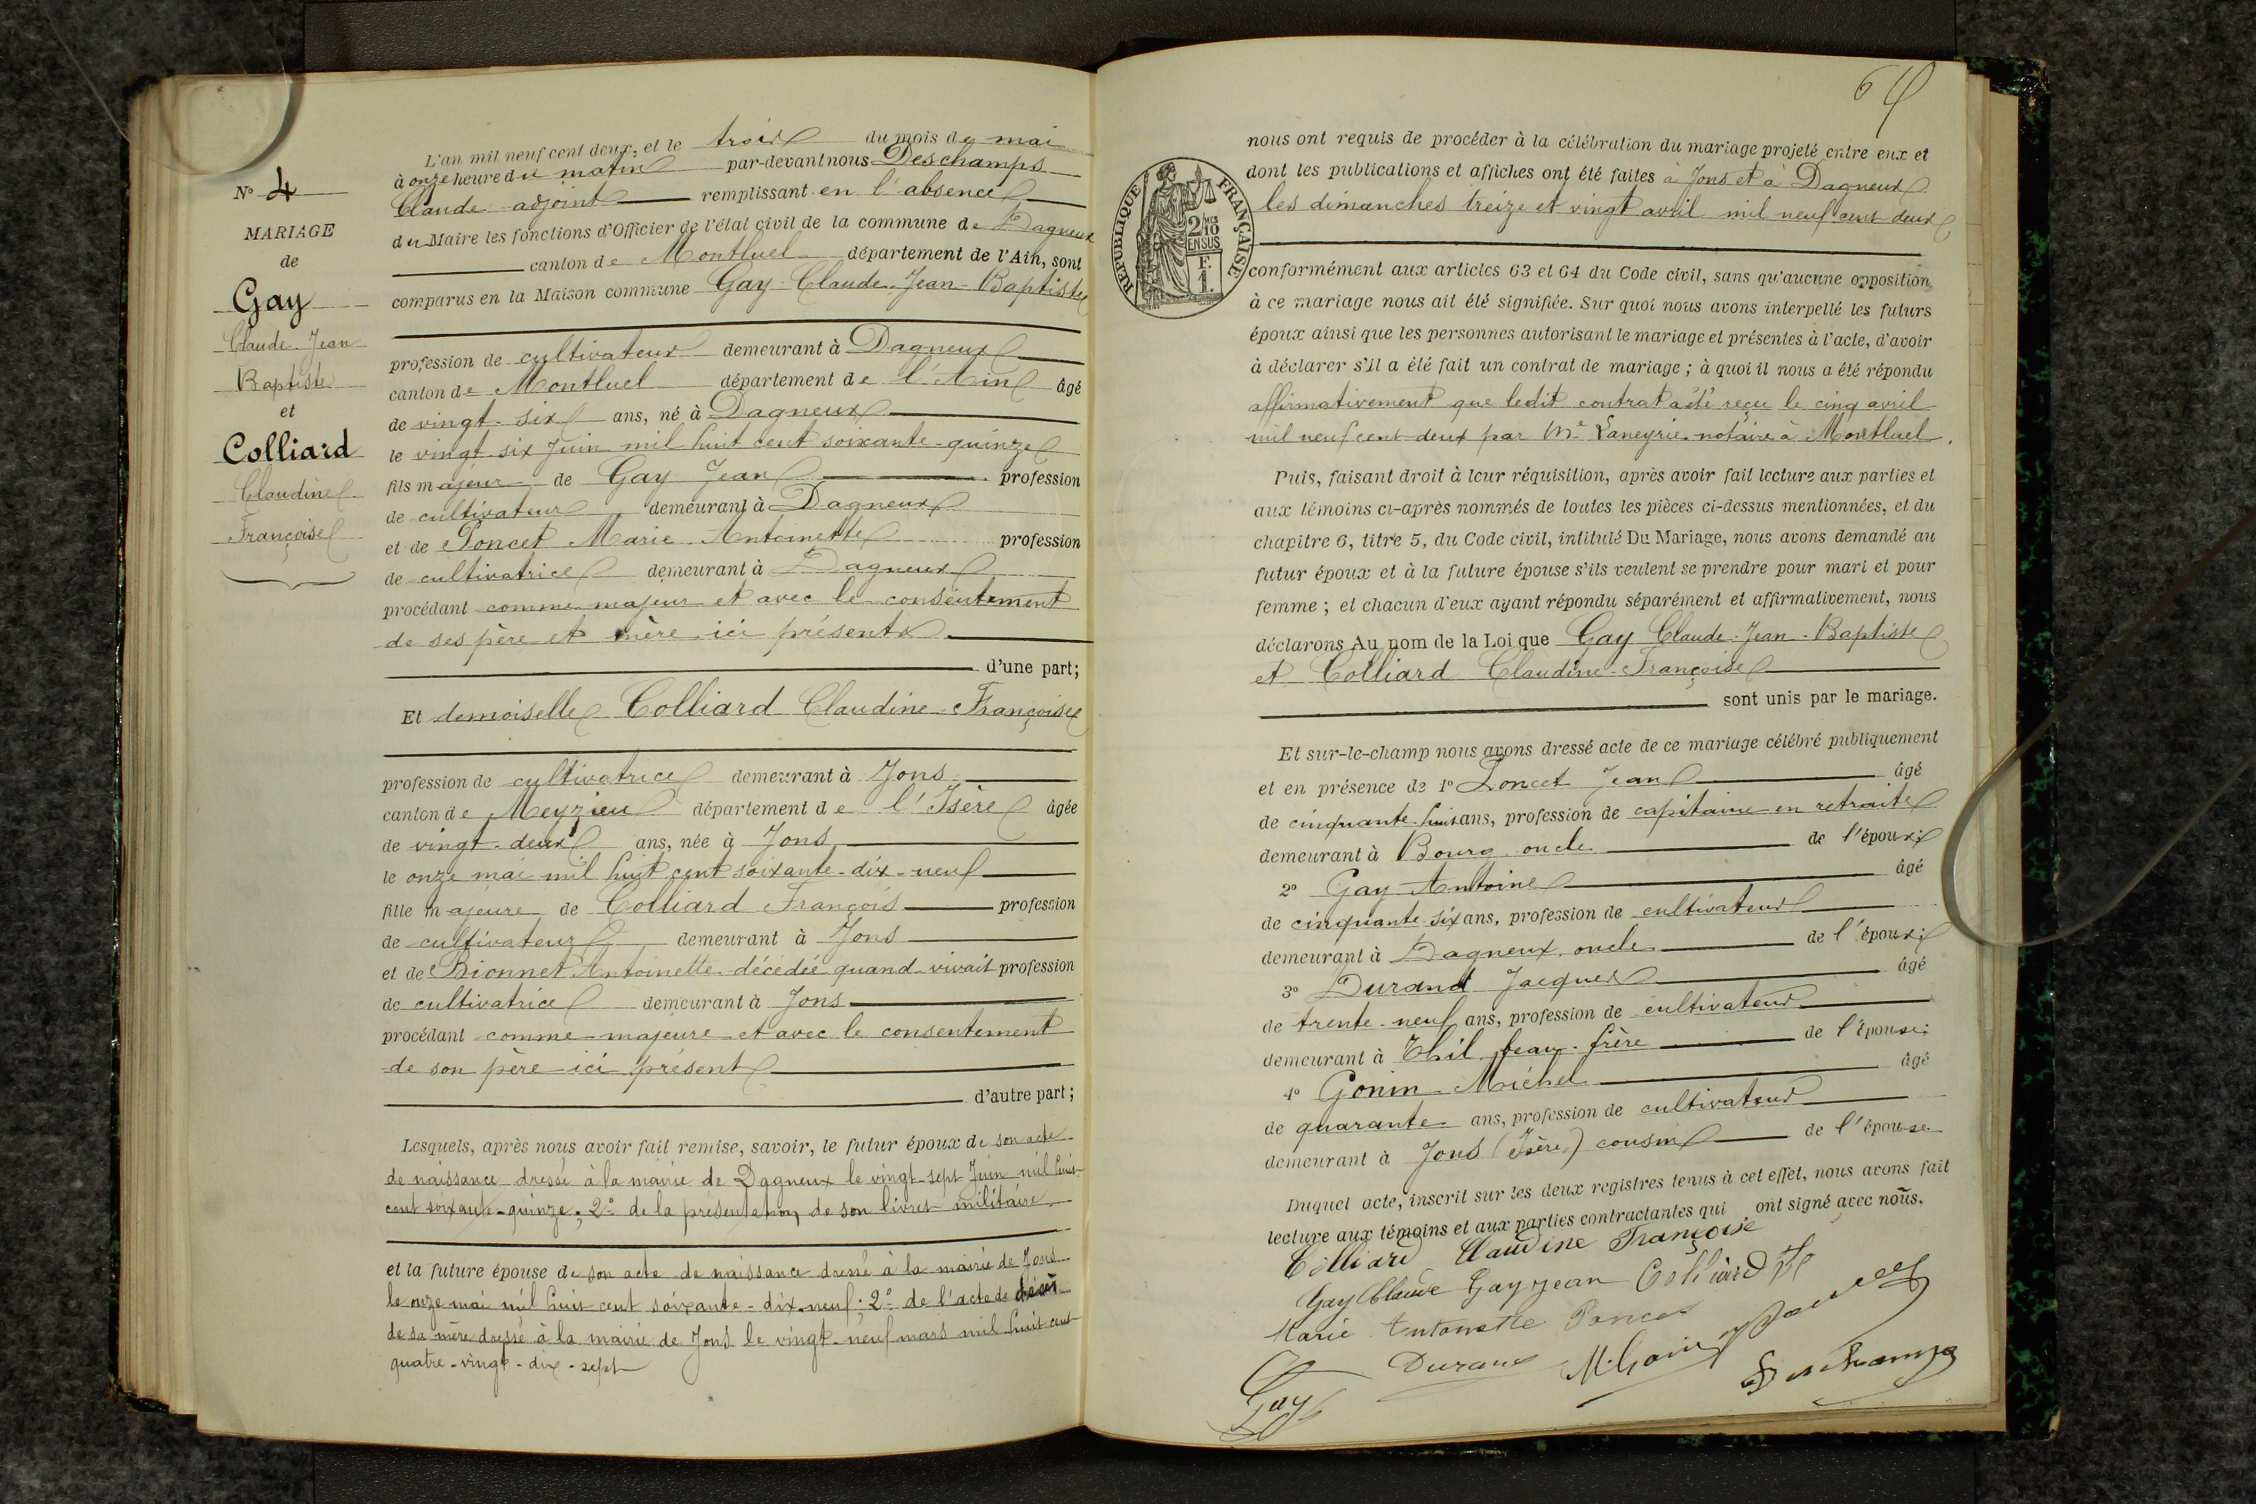 N° 4
MARIAGE
de
Gay
Claude-Jean
Baptiste
et
Colliard
Claudine
Françoise
L'an mil neuf cent deux, et le trois du mois de mai
à onze heure du matin par-devant nous Deschamps
Claude adjoint remplissant en l'absence
du Maire les fonctions d'Officier de l'état civil de la commune de Dagneux
canton de Montluel département de l'Ain, sont
comparus en la Maison commune Gay Claude-Jean-Baptiste
profession de cultivateur demeurant à Dagneux
canton de Montluel département de l'Ain âgé
de vingt-six ans, né à Dagneux
le vingt six Juin mil huit cent soixante-quinze
fils majeur de Gay Jean profession
de cultivateur demeurant à Dagneux
et de Poncet Marie Antoinette profession
de cultivatrice demeurant à Dagneux
procédant comme majeur et avec le consentement
de ses père et mère ici présents
d'une part;
Et demoiselle Colliard Claudine-Françoise
profession de cultivatrice demeurant à Jons
canton de Meyzieu département de l'Isère âgée
de vingt-deux ans, née à Jons
le onze mai mil huit cent soixante-dix-neuf
fille majeure de Colliard François profession
de cultivateur demeurant à Jons
et de Bionnet Antoinette décédée quand vivait profession
de cultivatrice demeurant à Jons
procédant comme majeure et avec le consentement
de son père ici présent
d'autre part;
Lesquels, après nous avoir fait remise, savoir, le futur époux de son acte
de naissance dressé à la mairie de Dagneux le vingt-sept Juin mil huit
cent soixante-quinze; 2° de la présentation de son livret militaire
et la future épouse de son acte de naissance dressé à la mairie de Jons
le onze mai mil huit cent soixante-dix-neuf. 2° de l'acte de décès
de sa mère dressé à la mairie de Jons le vingt-neuf mars mil huit cent
quatre-vingt-dix-sept
64
RÉPUBLIQUE FRANÇAISE
2/10 EN SUS
F.
1.
nous ont requis de procéder à la célébration du mariage projeté entre eux et
dont les publications et affiches ont été faites à Jons et à Dagneux
les dimanches treize et vingt avril mil neuf cent deux
conformément aux articles 63 et 64 du Code civil, sans qu'aucune opposition
à ce mariage nous ait été signifiée. Sur quoi nous avons interpellé les futurs
époux ainsi que les personnes autorisant le mariage et présentes à l'acte, d'avoir
à déclarer s'il a été fait un contrat de mariage; à quoi il nous a été répondu
affirmativement que ledit contrat a été reçu le cinq avril
mil neuf cent deux par Me Laneyrie notaire à Montluel.
Puis, faisant droit à leur réquisition, après avoir fait lecture aux parties et
aux témoins ci-après nommés de toutes les pièces ci-dessus mentionnées, et du
chapitre 6, titre 5, du Code civil, intitulé Du Mariage, nous avons demandé au
futur époux et à la future épouse s'ils veulent se prendre pour mari et pour
femme; et chacun d'eux ayant répondu séparément et affirmativement, nous
déclarons Au nom de la Loi que Gay Claude-Jean-Baptiste
et Colliard Claudine-Françoise
sont unis par le mariage.
Et sur-le-champ nous avons dressé acte de ce mariage célébré publiquement
et en présence de 1° Poncet Jean âgé
de cinquante-huit ans, profession de capitaine en retraite
demeurant à Bourg oncle de l'époux;
2° Gay Antoine âgé
de cinquante-six ans, profession de cultivateur
demeurant à Dagneux oncle de l'époux;
3° Durand Jacques âgé
de trente-neuf ans, profession de cultivateur
demeurant à Thil beau-frère de l'épouse;
4° Gonin Michel âgé
de quarante ans, profession de cultivateur
demeurant à Jons (Isère) cousin de l'épouse
Duquel acte, inscrit sur les deux registres tenus à cet effet, nous avons fait
lecture aux témoins et aux parties contractantes qui ont signé avec nous.
Colliard Claudine Françoise
Gay Claude Gay jean Colliard
Marie Antoinette Poncet
Gay Durand M. Gonin Deschamps